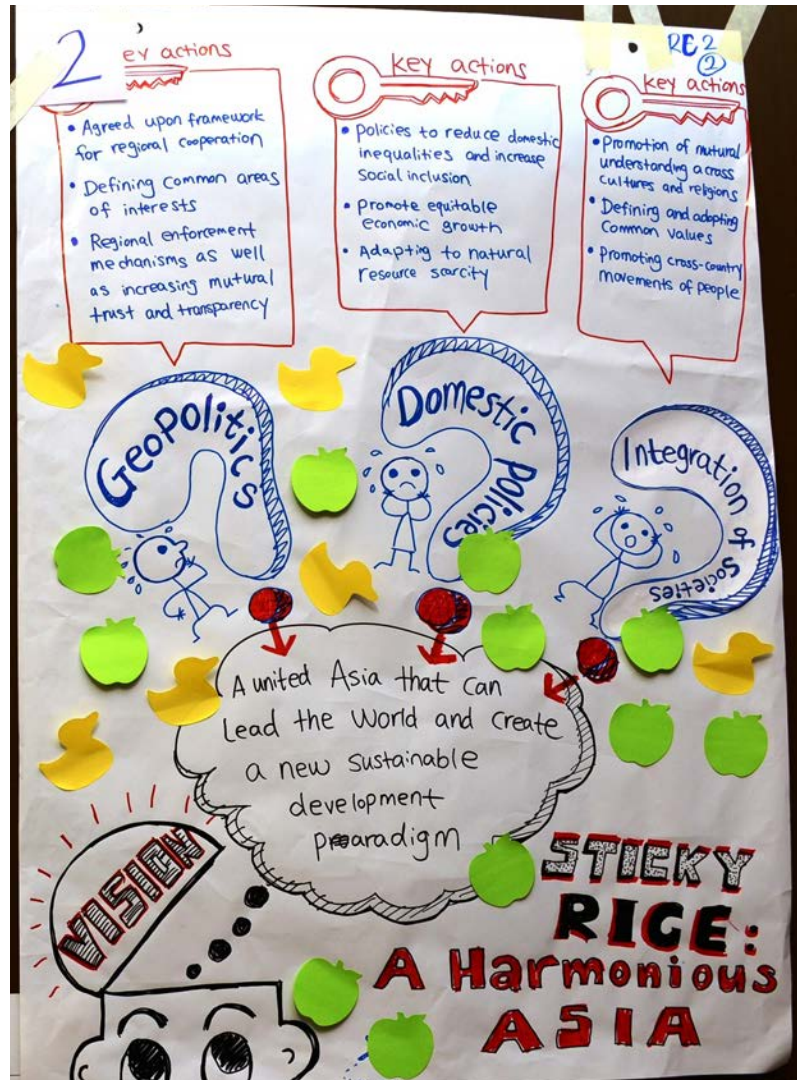 2
RE 2
2
ey actions
• Agreed upon framework
for regional cooperation
• Defining Common areas
of interests
• Regional enforcement
mechanisms as well
as increasing mutural
trust and transparency
key actions
• Policies to reduce domestic
inequalities and increase
Social inclusion
• Promote equitable
economic growth
• Adapting to natural
resource scarcity
key actions
• Promotion of mutural
understanding across
cultures and religions
• Defining and adopting
Common values
• Promoting cross-country
movements of people
Geopolitics
Domestic Policies
Integration of Societies
A united Asia that can
Lead the World and create
a new sustainable
development
paradigm
VISION
STICKY
RICE:
A Harmonious
ASIA